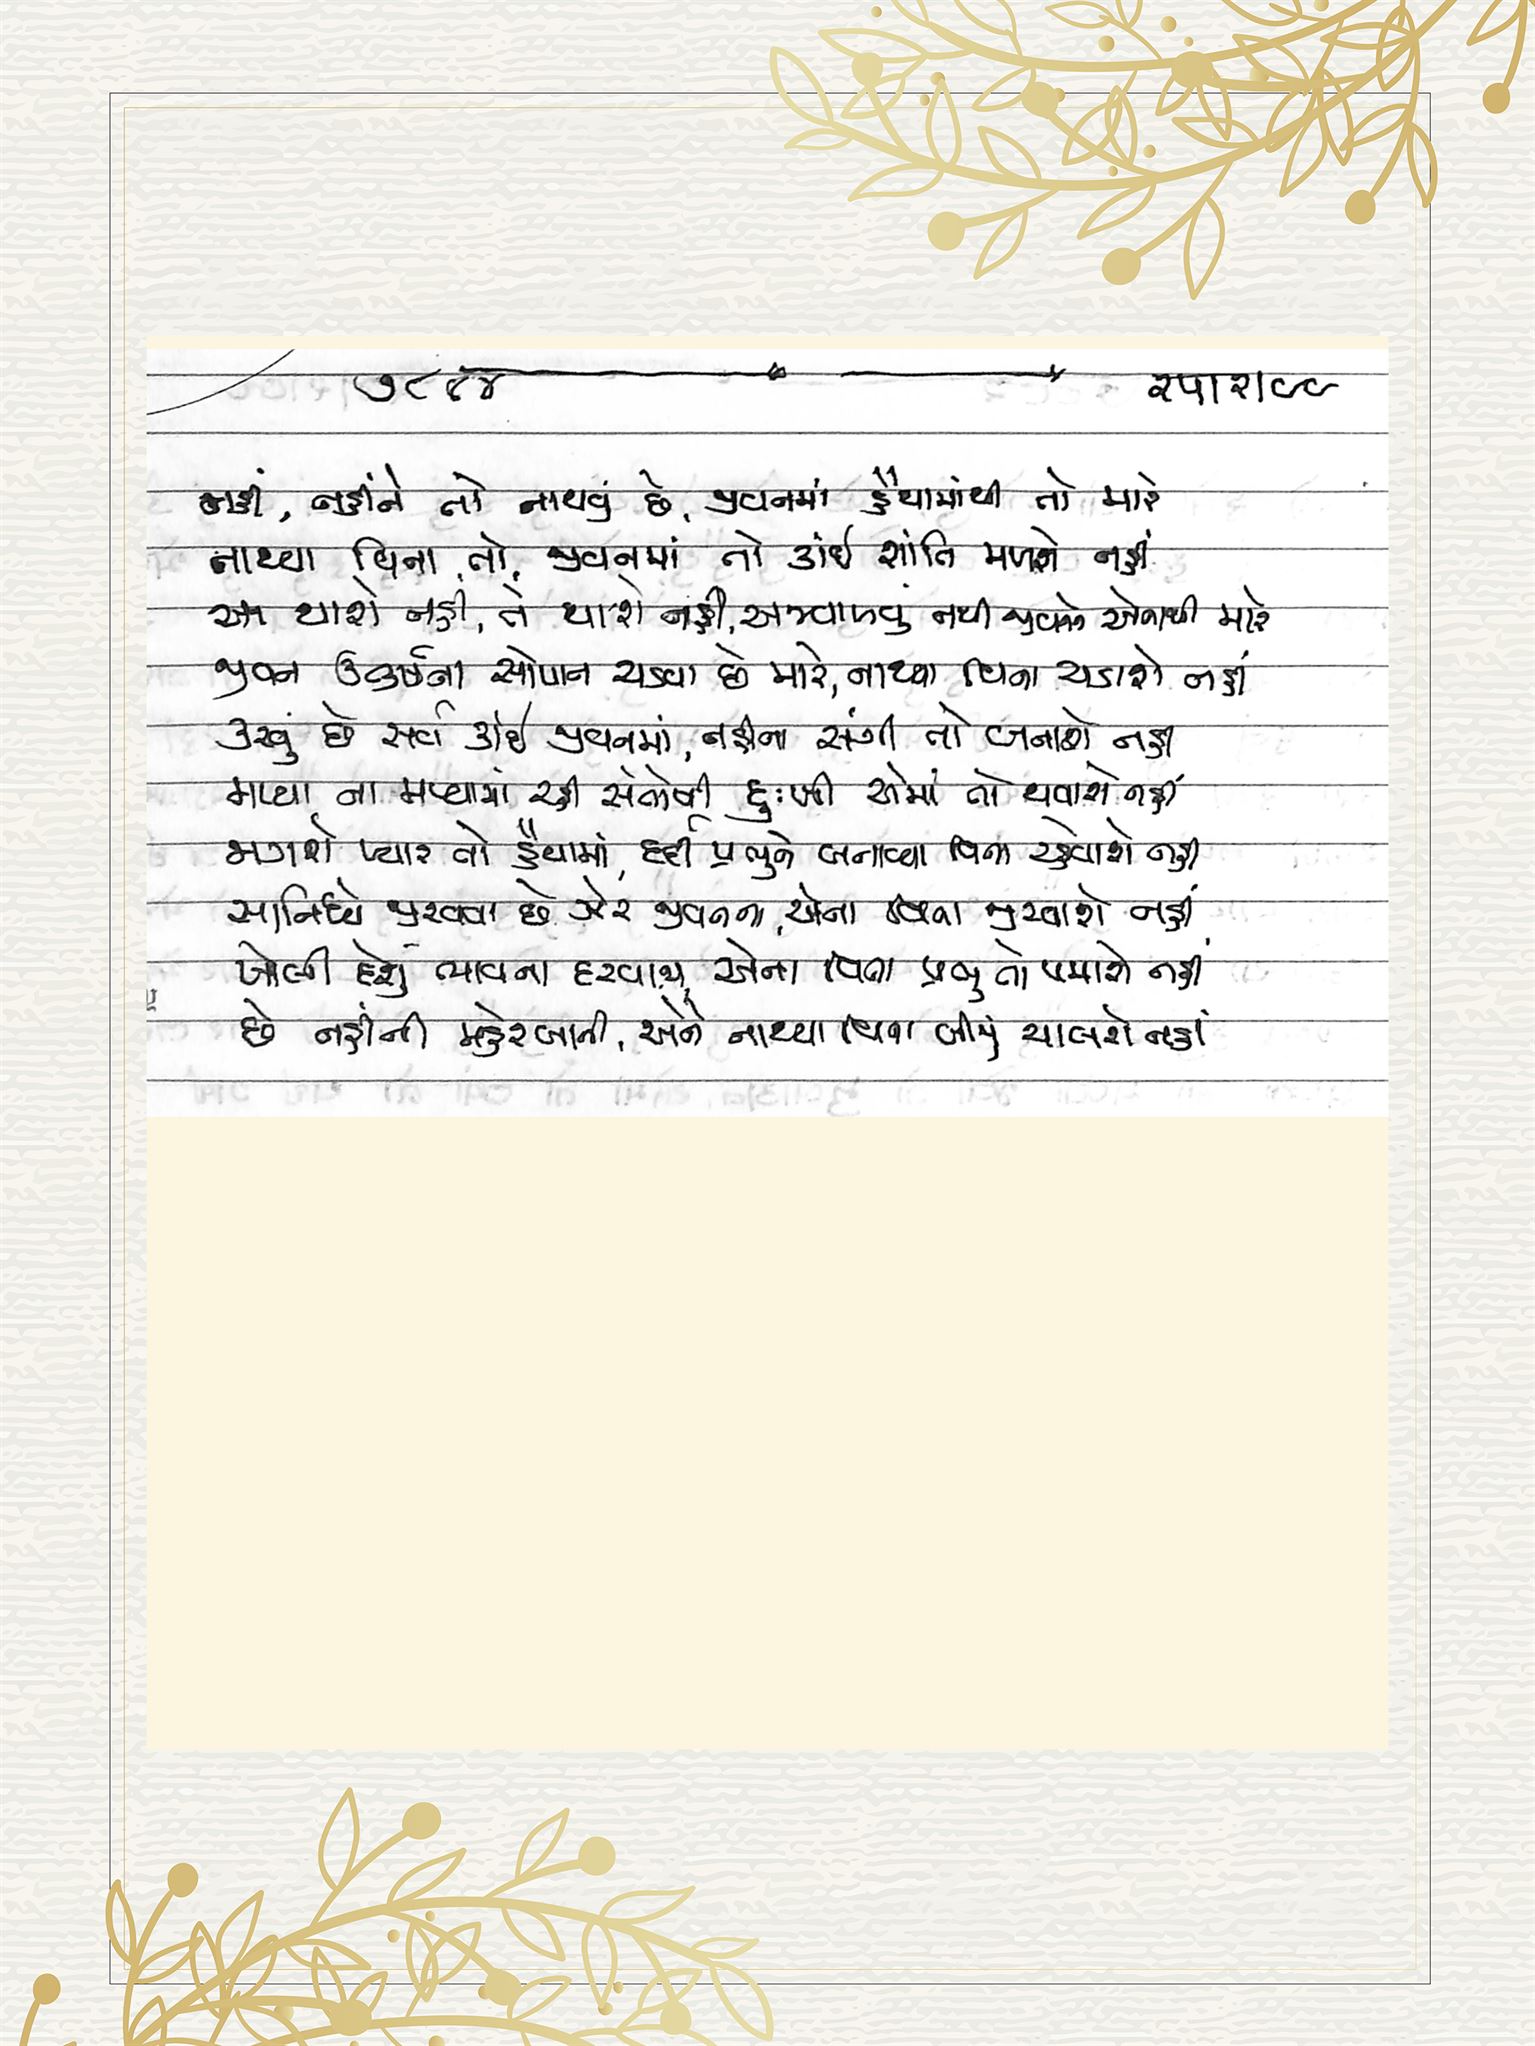 ૭૮૪૪ ૨૫।૨।૯૯
નહીં, નહીંને તો નાથવું છે, જીવનમાં હૈયામાંથી તો મારે
નાથ્યા વિના તો, જીવનમાં તો કાંઈ શાંતિ મળશે નહીં
આ થાશે નહીં, તે થાશે નહીં, અજવાળવું નથી જીવનને એનાથી મારે
જીવન ઉત્કર્ષના સોપાન ચડવા છે મારે, નાથ્યા વિના ચડાશે નહીં
કરવું છે સર્વ કાંઈ જીવનમાં, નહીંના સંગી તો બનાશે નહીં
માયા ના મય્યામાં રહી સંતોષી દુઃખી એમાં તો થવાશે નહીં
મળશે પ્યાર તો હૈયામાં, દર્દી પ્રભુને બનાવ્યા વિના રહેવાશે નહીં
સાંનિધ્યે જીરવવા છે ઝેર જીવનના, એના વિના જીરવાશે નહીં
ખોલી દેશું ભાવના દરવાજા, એના વિના પ્રભુ તો પમાશે નહીં
છે નહીંની મહેરબાની, એને નાથ્યા વિના બીજું ચાલશે નહીં